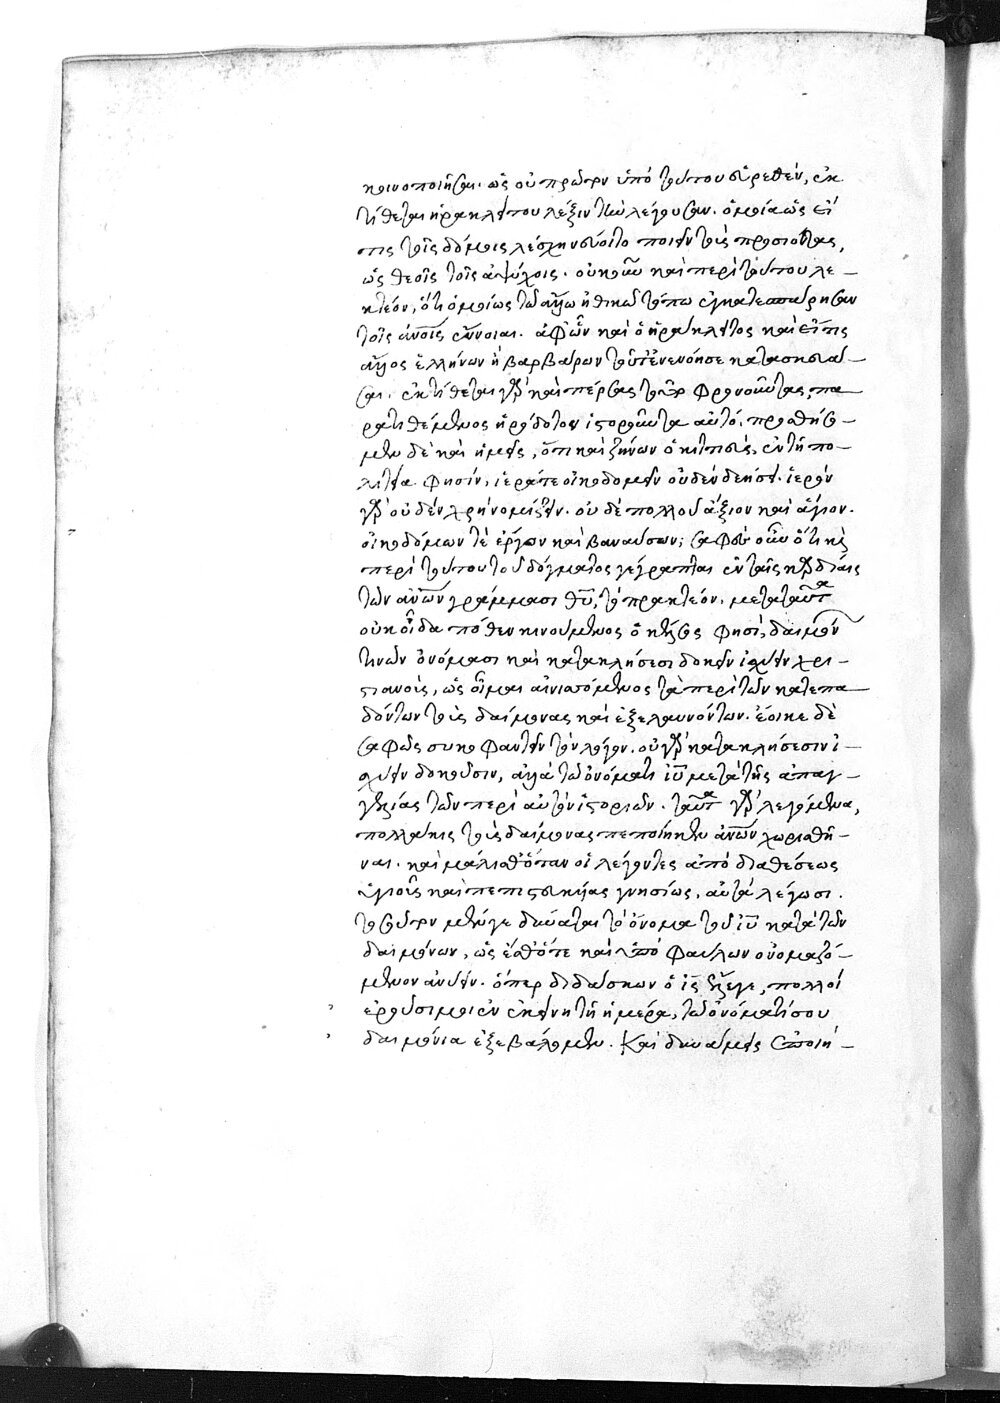 κοινοποιῆσαι. ὡς οὐ πρῶτον ὑπὸ τούτου εὑρεθὲν, ἐκ
τίθεται ἡρακλείτου λέξιν τὴν λέγουσαν. ὅμοια ὡς εἴ
τις τοῖς δόμοις λεσχηνεύοιτο ποιεῖν τοὺς προσιόντας,
ὡς θεοῖς τοῖς ἀψύχοις. οὐκοῦν καὶ περὶ τούτου λε-
κτέον, ὅτι ὁμοίως τῷ ἄλλῳ ἠθικῷ τόπῳ ἐγκατεσπάρησαν
τοῖς ἀνοις ἔννοιαι. ἀφ' ὧν καὶ ὁ ἡράκλειτος καὶ εἴ τις
ἄλλος ἑλλήνων ἢ βαρβάρων τοῦτ' ἐνενόησε κατασκευά-
σαι. ἐκτίθεται γὰρ καὶ πέρσας τοῦτο φρονοῦντας, πα
ρατιθέμενος ἡρόδοτον ἱστοροῦντα αὐτό. προσθήσο-
μεν δὲ καὶ ἡμεῖς, ὅτι καὶ ζήνων ὁ κιτιεὺς, ἐν τῇ πο-
λιτεία φησίν, ἱερά τε οἰκοδομεῖν οὐδὲν δεήσει. ἱερὸν
γὰρ οὐδὲν χρὴ νομίζειν. οὐδὲ πολλοῦ ἄξιον καὶ ἅγιον.
οἰκοδόμων τε ἔργον καὶ βαναύσων; σαφὲς οὖν ὅτι καὶ
περὶ τούτου τοῦ δόγματος γέγραπται ἐν ταῖς καρδίαις
τῶν ἀνων γράμμασι θυ, τὸ πρακτέον. μετὰ ταῦτα
οὐκ οἶδα πόθεν κινούμενος ὁ κέλσος φησὶ, δαιμόνων
τινῶν ὀνόμασι καὶ κατακλήσεσι δοκεῖν ἰσχύειν χρι-
στιανοὺς, ὡς οἶμαι αἰνισσόμενος τὰ περὶ τῶν κατεπα
δόντων τοὺς δαίμονας καὶ ἐξελαυνόντων. ἔοικε δὲ
σαφῶς συκοφαντεῖν τὸν λόγον. οὐ γὰρ κατακλήσεσιν ἰ-
σχύειν δοκοῦσιν, ἀλλὰ τῷ ὀνόματι ιυ μετὰ τῆς ἀπαγ-
γελίας τῶν περὶ αὐτὸν ἱστοριῶν. ταῦτα γὰρ λεγόμενα,
πολλάκις τοὺς δαίμονας πεποίηκεν ἀνων χωρισθῆ-
ναι. καὶ μάλισθ' ὅταν οἱ λέγοντες ἀπὸ διαθέσεως
ὑγιοῦς καὶ πεπιστευκυίας γνησίως, αὐτὰ λέγωσι.
τοσοῦτον μέν γε δύναται τὸ ὄνομα τοῦ ιυ κατὰ τῶν
δαιμόνων, ὡς ἔσθ' ὅτε καὶ ὑπὸ φαύλων ὀνομαζό-
μενον ἀνύειν. ὅπερ διδάσκων ὁ ις ἔλεγε, πολλοὶ
ἐροῦσί μοι ἐν ἐκείνῃ τῇ ἡμέρα, τῷ ὀνόματί σου
δαιμόνια ἐξεβάλομεν. Καὶ δυνάμεις ἐποιή-